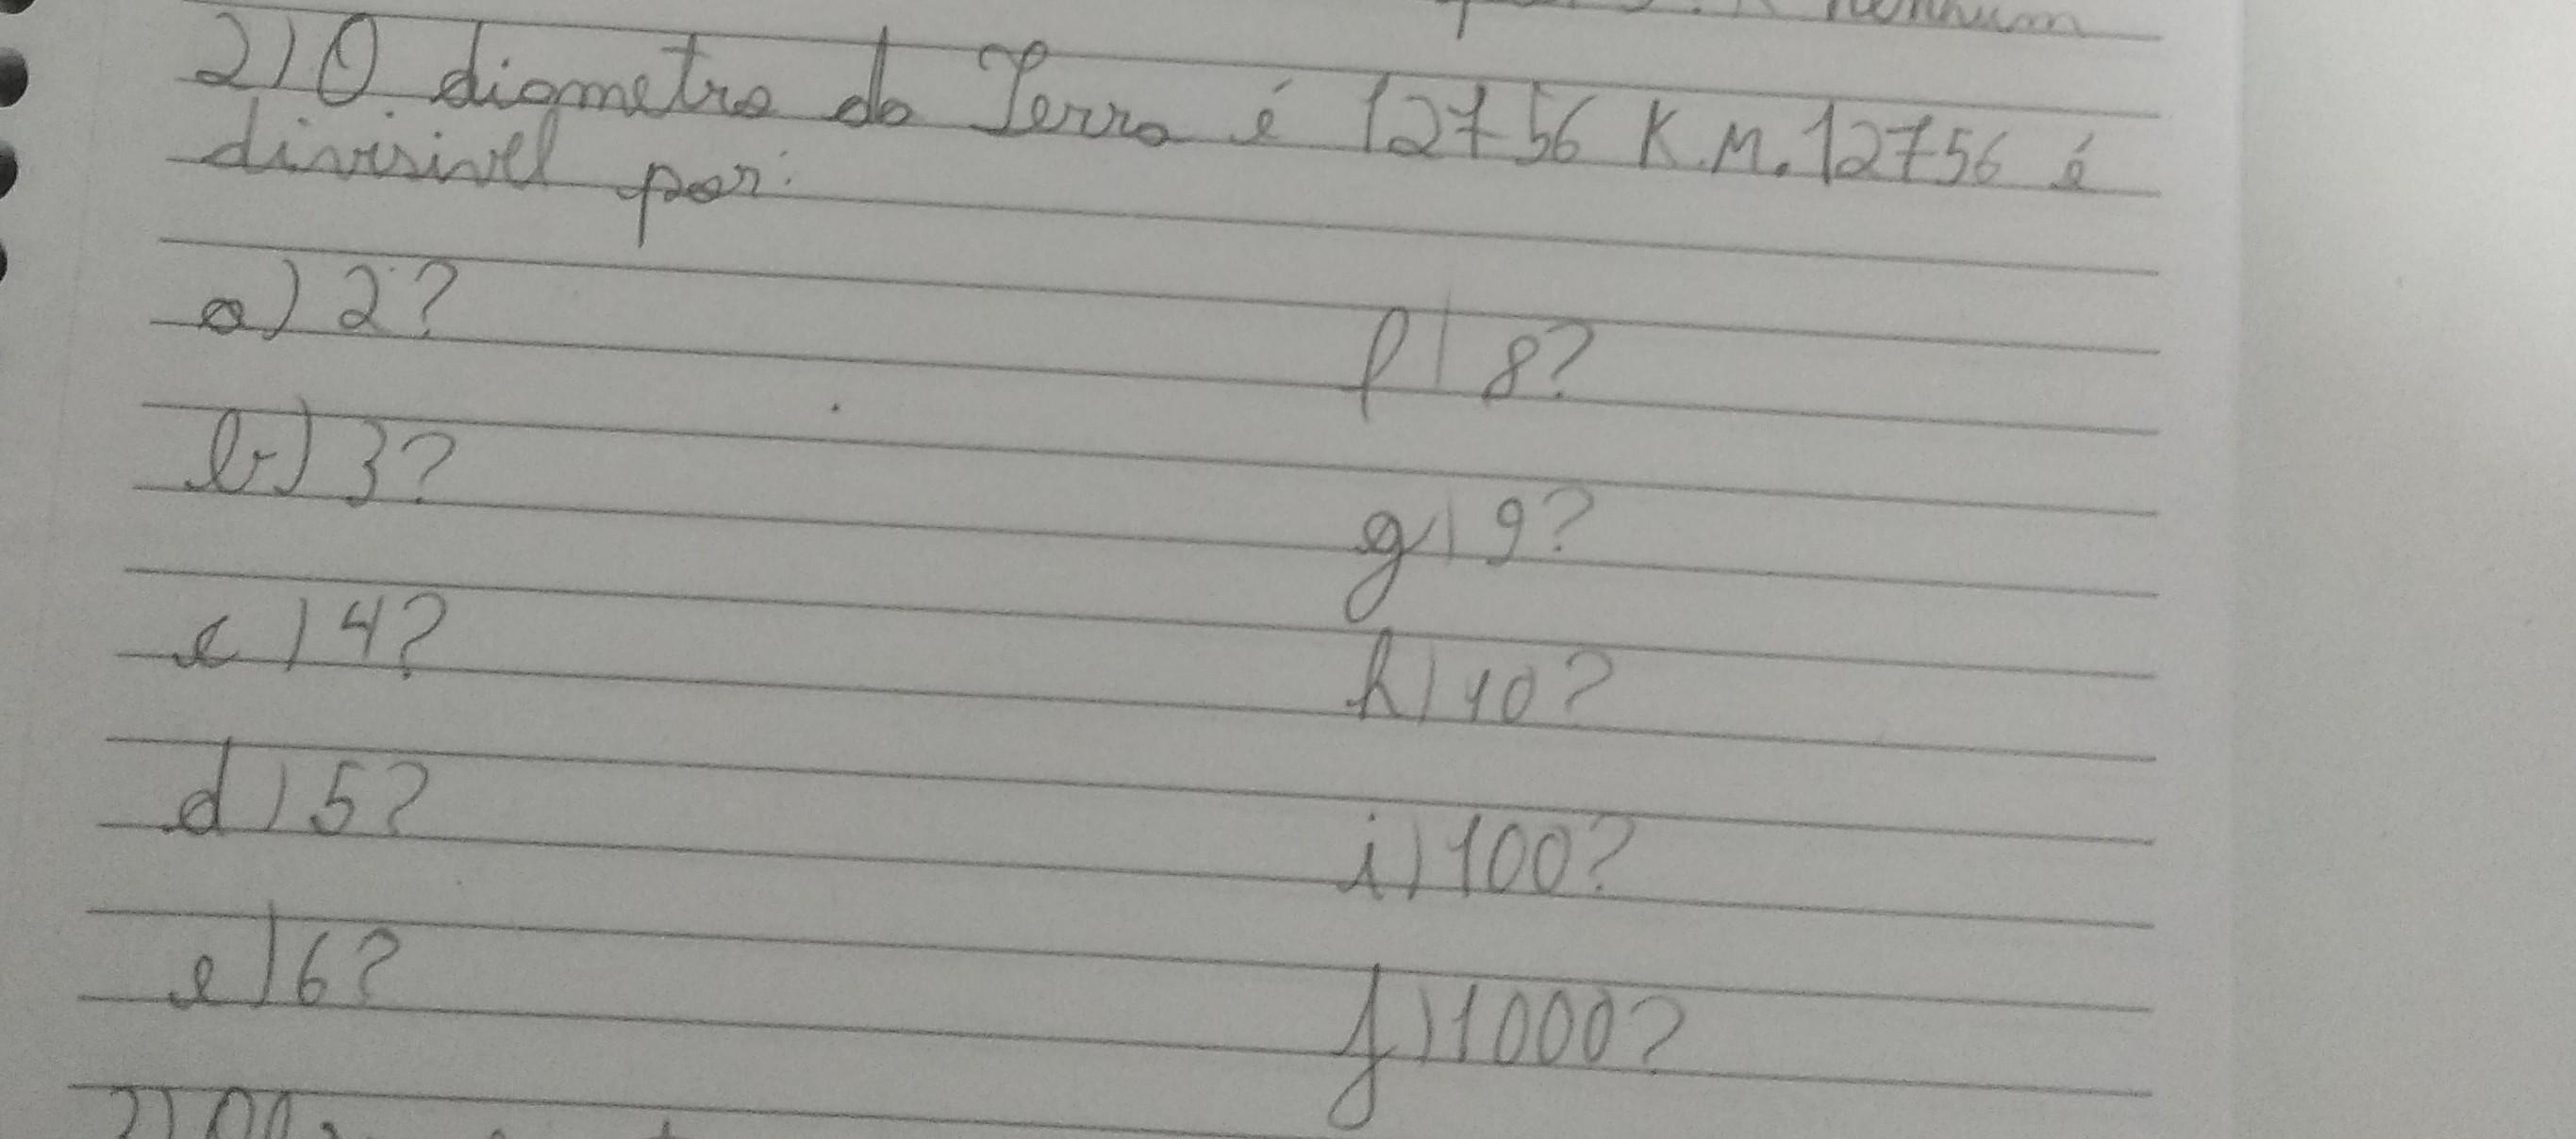 nenhum
2) O diametro da Terra é 12756 K.M. 12756 é
divisivel por:
a) 2?
f) 8?
b) 3?
g) 9?
c) 4?
h) 10?
d) 5?
i) 100?
e) 6?
j) 1000?